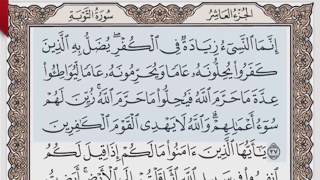 الجزء العاشر
سورة التوبة
إِنَّمَا ٱلنَّسِىٓءُ زِيَادَةٌ فِى ٱلْكُفْرِ ۖ يُضَلُّ بِهِ ٱلَّذِينَ
كَفَرُوا۟ يُحِلُّونَهُۥ عَامًا وَيُحَرِّمُونَهُۥ عَامًا لِّيُوَاطِـُٔوا۟
عِدَّةَ مَا حَرَّمَ ٱللَّهُ فَيُحِلُّوا۟ مَا حَرَّمَ ٱللَّهُ ۚ زُيِّنَ لَهُمْ
سُوٓءُ أَعْمَـٰلِهِمْ ۗ وَٱللَّهُ لَا يَهْدِى ٱلْقَوْمَ ٱلْكَـٰفِرِينَ
٣٧ يَـٰٓأَيُّهَا ٱلَّذِينَ ءَامَنُوا۟ مَا لَكُمْ إِذَا قِيلَ لَكُمُ